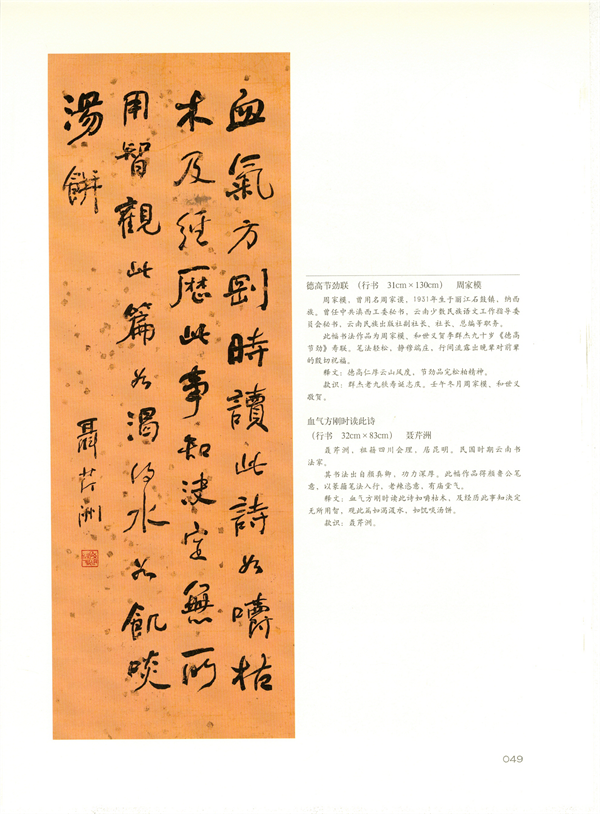 血氣方剛時讀此詩如嚼枯
木及經歷此事知決定無所
用智觀此篇如渴得水如飢啖
湯餅
聶芹洲
德高节劲联 （行书 31cm×130cm） 周家模
周家模，曾用名周家谟，1931年生于丽江石鼓镇，纳西
族。曾任中共滇西工委秘书，云南少数民族语文工作指导委
员会秘书，云南民族出版社副社长、社长、总编等职务。
此幅书法作品为周家模、和世义贺李群杰九十岁《德高
节劲》寿联，笔法轻松、静穆端庄，行间流露出晚辈对前辈
的殷切祝福。
释文：德高仁厚云山风度，节劲品完松柏精神。
款识：群杰老九秩寿诞志庆，壬午冬月周家模、和世义
敬贺。
血气方刚时读此诗
（行书 32cm×83cm） 聂芹洲
聂芹洲，祖籍四川会理，居昆明。民国时期云南书
法家。
其书法出自颜真卿，功力深厚。此幅作品得颜鲁公笔
意，以篆籀笔法入行，老辣恣意，有庙堂气。
释文：血气方刚时读此诗如嚼枯木，及经历此事知决定
无所用智，观此篇如渴汲水，如饥啖汤饼。
款识：聂芹洲。
049